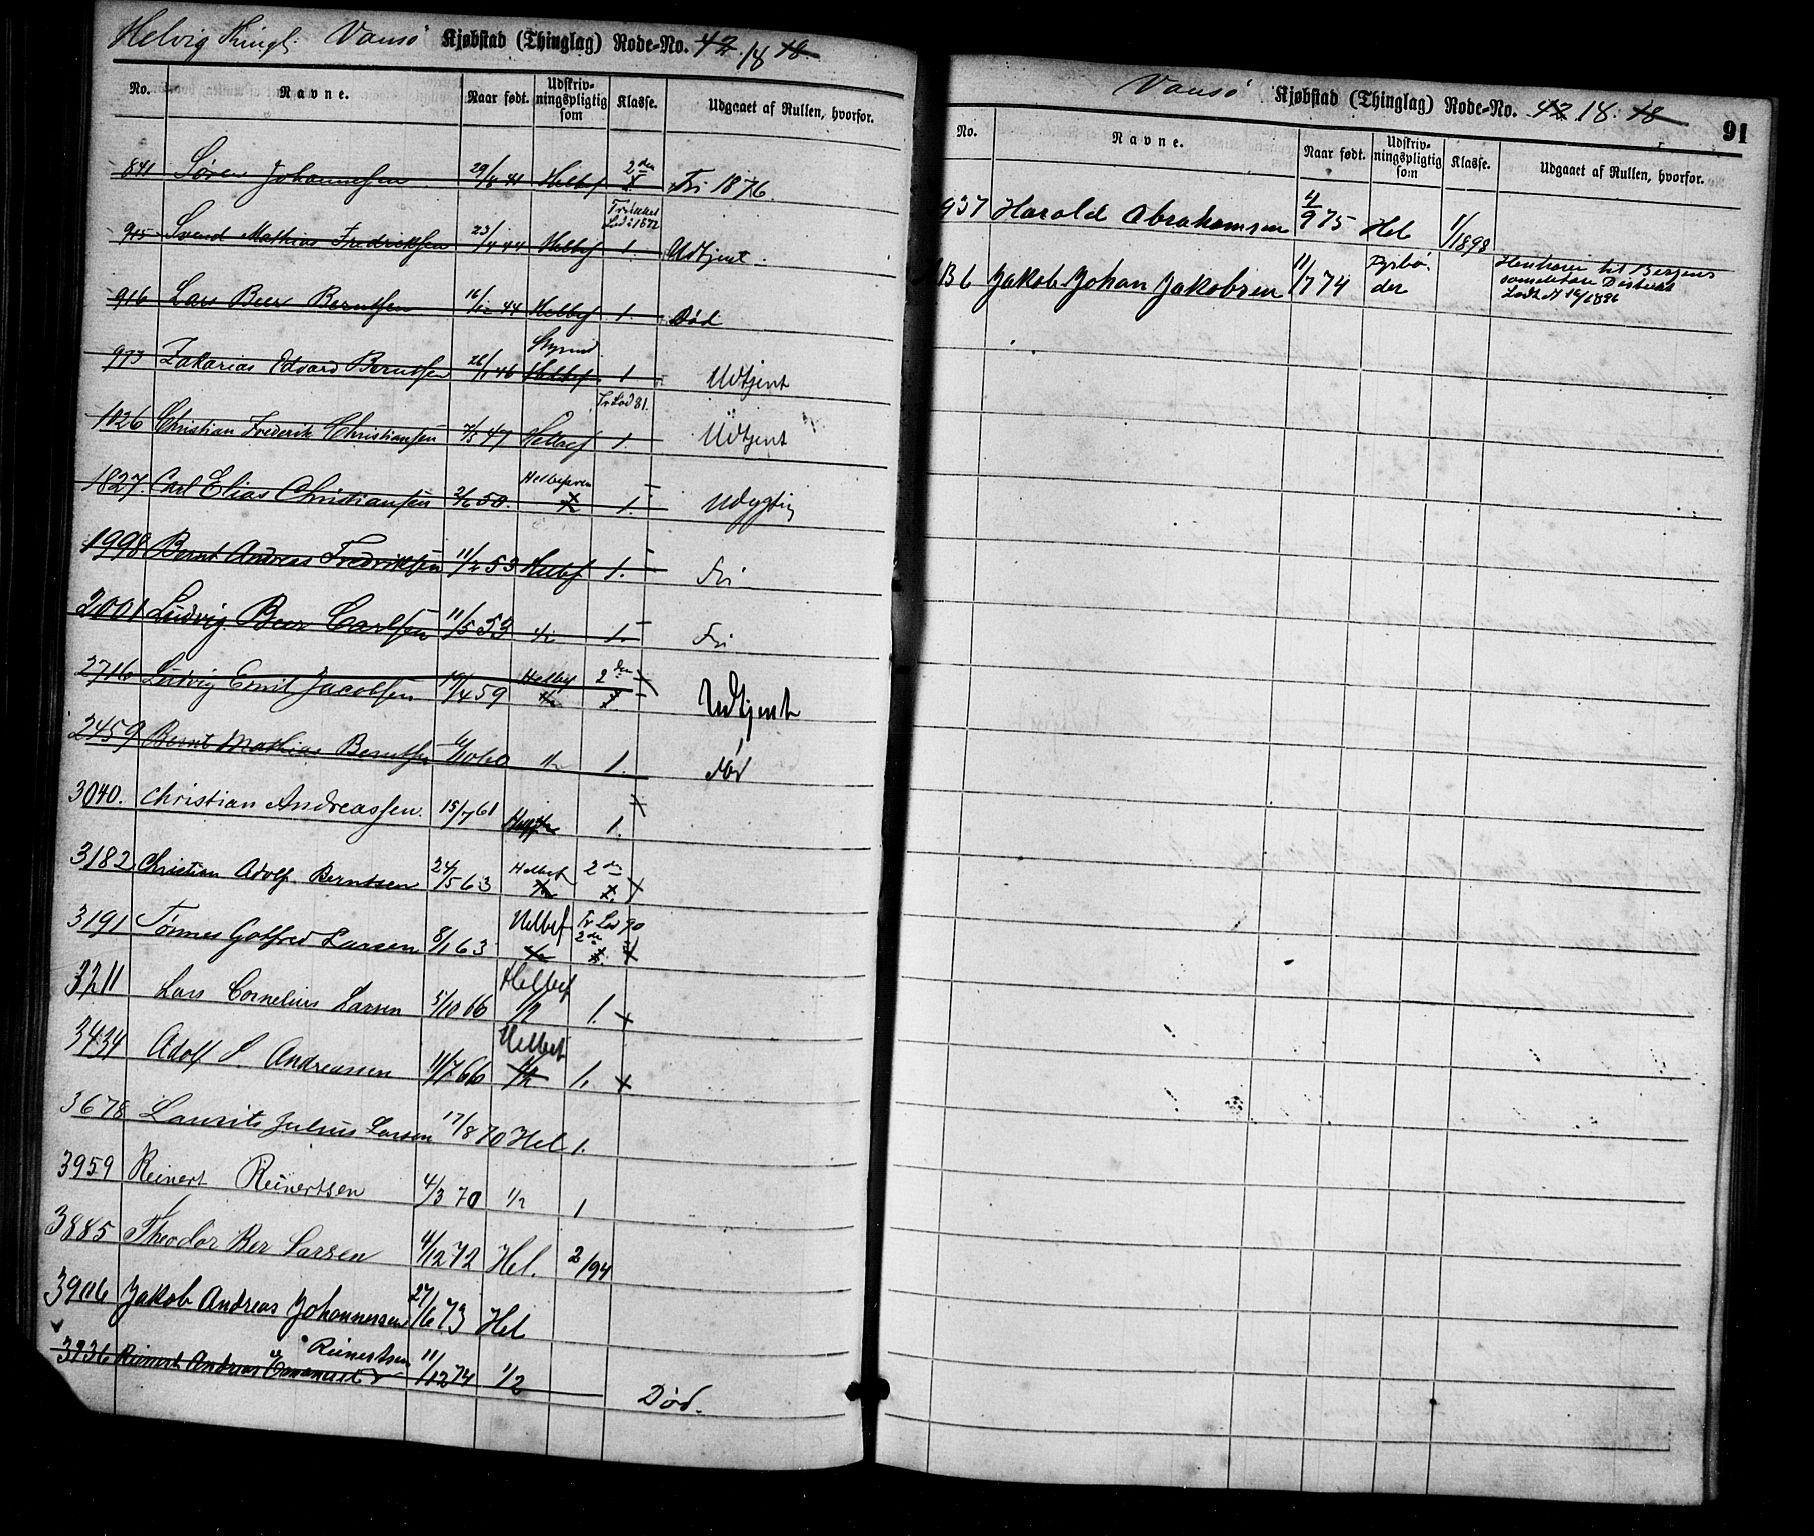 Helvig Thingl. Vansø Kjøbstad (Thinglag) Rode-No. 42. 18 18.
No. Navne. Naar født. Udskriv-ningspligtig som Klasse. Udgaaet af Rullen, hvorfor.
841 Søren Johannesen 29/8 41 Helbef 2den 1. Fri 1876.
945 Svend Mathias Fredriksen 23/4 44 Helbef 1. Udtjent.
916 Lars Beer Berntsen 16/12 44 Helbef 1. Død
973 Zakarias Edvard Berntsen 26/1 46 Helbef 1 Udtjent
1026 Christian Frederik Christiansen 7/5 47 Helbef 1. Udtjent
Fr Lod 81.
1827 Carl Elias Christiansen 2/6 50. 1. Udygtig
1998 Bernt Andreas Fredriksen 11/2 53 Helbef 1. Fri
2001 Ludvig Beer Carlsen 11/5 53 1/2 1. Fri
2716 Ludvig Emil Jacobsen 19/4 59 Helbef 2den Udtjent
2459 Bernt Mathias Berntsen 6/10 60 1/2 1.
3040. Christian Andreassen 15/7 61 1.
3182 Christian Adolf Berntsen 24/5 63 Helbef 2den
3191 Tønnes Gotfred Larsen 8/1 63 Helbef Fr Lod 90 2den
3211 Lars Cornelius Larsen 5/10 66 Helbef 1/2 1.
3434 Adolf L. Andreassen 11/7 66 Helbef 1/2 1.
3678 Laurits Julius Larsen 17/8 70 Hel 1.
3959 Reinert Reinertsen 4/3 70 1/2 1
3885 Theodor Ber Larsen 4/12 72 Hel. 2/94
3906 Jakob Andreas Johannessen 27/6 73 Hel
3936 Reinert Andreas Emanuel Reinertsen 11/12 74 1/2 Død.
Vansø Kjøbstad (Thinglag) Rode-No. 42 18. 18
91
No. Navne. Naar født. Udskriv-ningspligtig som Klasse. Udgaaet af Rullen, hvorfor.
937 Harald Abrahamsen 4/9 75 Hel 1/1898
B6 Jakob Johan Jakobsen 11/7 74 Fyrbø-der Henhører til Bergens